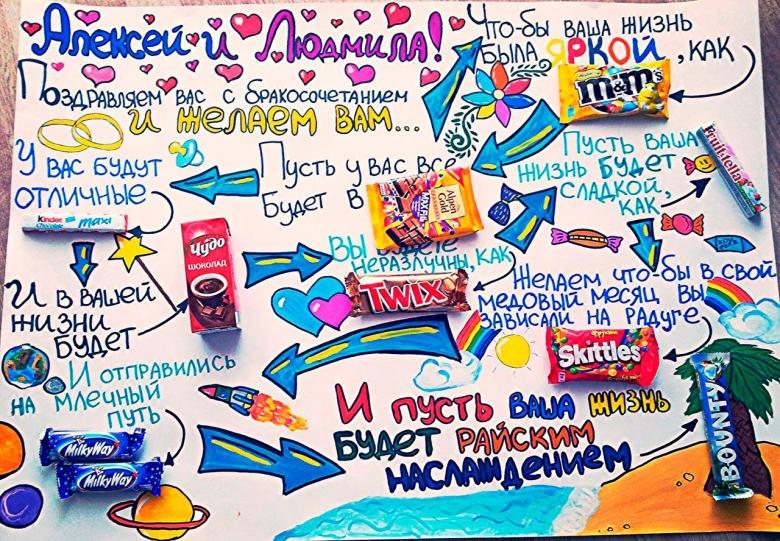 Алексей и Людмила!
Поздравляем вас с бракосочетанием
и желаем вам...
Что-бы ваша жизнь
была яркой, как
m&m's
Пусть ваша
жизнь будет
сладкой,
как
Fruittella
Пусть у вас все
будет в
Alpen Gold
MAXFUN
У вас будут
отличные
kinder
chocolate maxi
Чудо
шоколад
И в вашей
жизни
будет
Вы
неразлучны, как
TWIX
Желаем что-бы в свой
медовый месяц вы
зависали на радуге
Skittles
И отправились
на млечный
путь
MilkyWay
MilkyWay
И пусть ваша жизнь
будет райским
наслаждением
BOUNTY